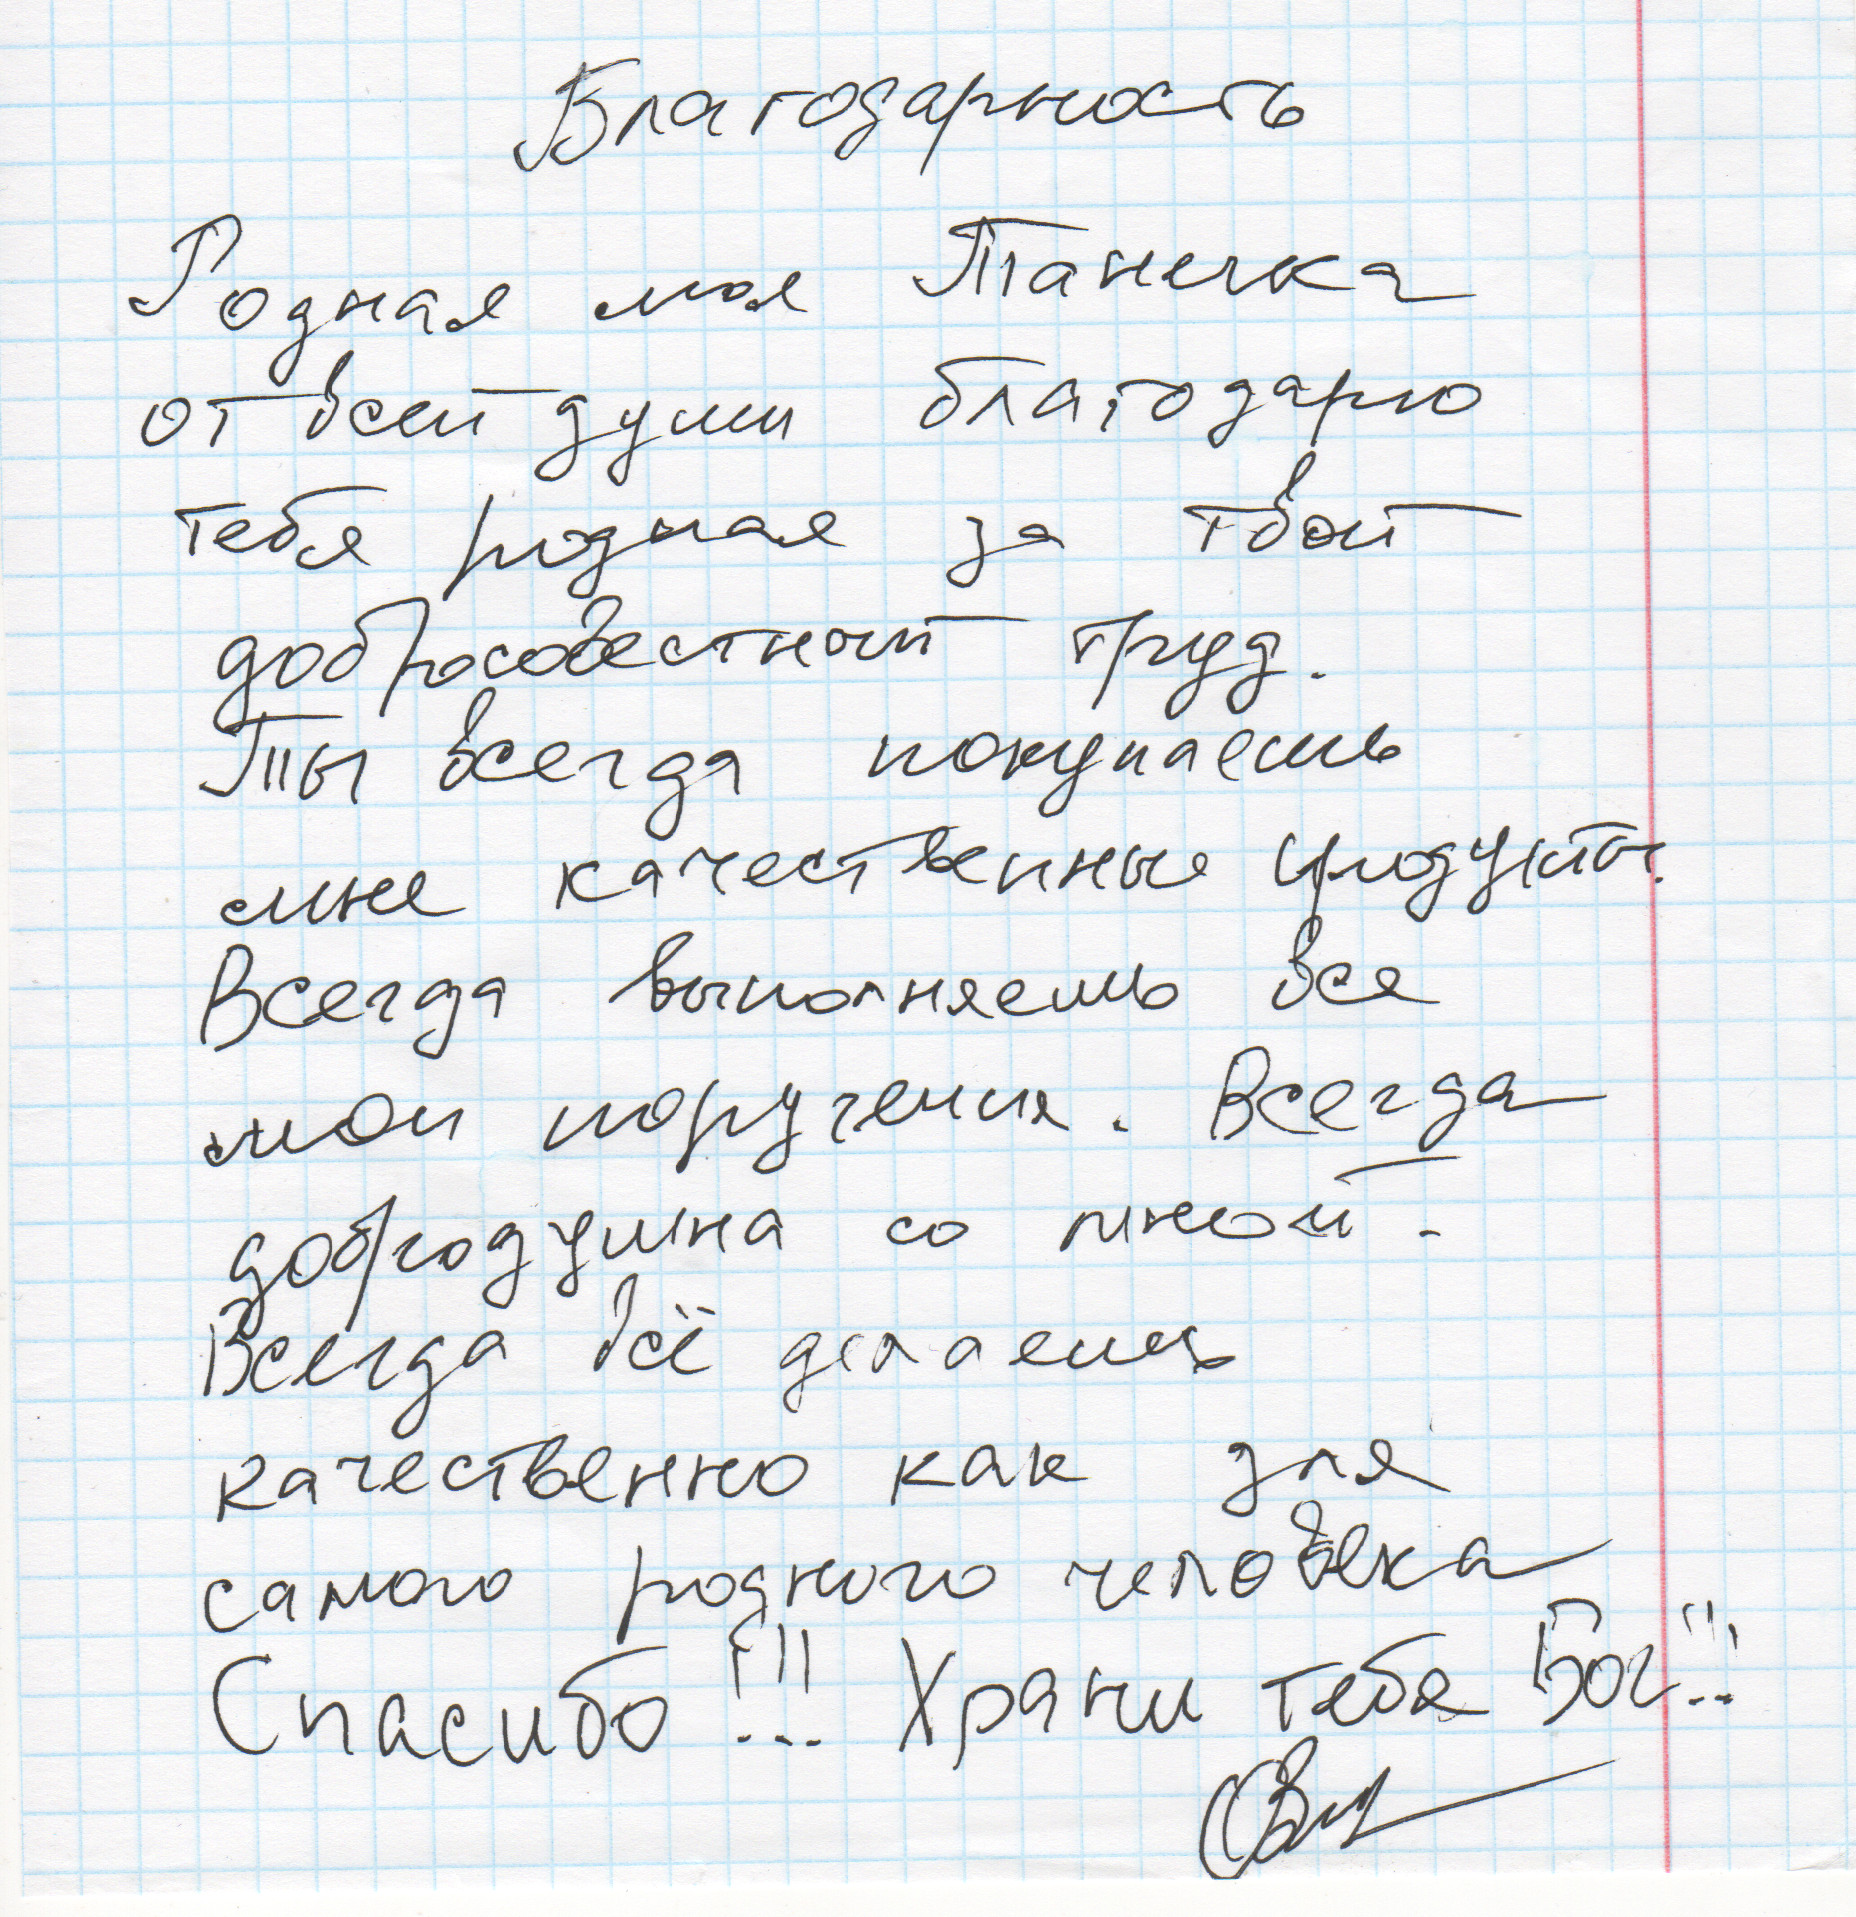 Благодарность
Родная моя Танечка
от всей души благодарю
тебя родная за твой
добросовестный труд.
Ты всегда покупаешь
мне качественные продукты.
Всегда выполняешь все
мои поручения. Всегда
добродушна со мной.
Всегда всё делаешь
качественно как для
самого родного человека
Спасибо!!! Храни тебя Бог!!!